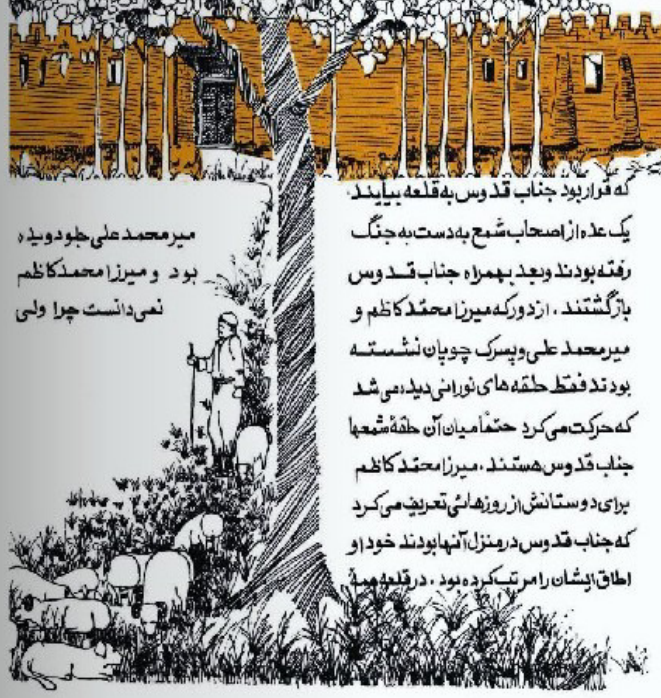 که قرار بود جناب قدوس به قلعه بیایند.
یک عده از اصحاب شمع به دست به جنگ
رفته بودند و بعد بهمراه جناب قدوس
بازگشتند. از دور که میرزا محمّد کاظم و
میر محمد علی و پسرک چوپان نشسته
بودند فقط حلقه های نورانی دیده می شد
که حرکت می کرد حتماً میان آن حلقهٔ شمعها
جناب قدوس هستند. میرزا محمّد کاظم
برای دوستانش از روزهائی تعریف می کرد
که جناب قدوس در منزل آنها بودند خود او
اطاق ایشان را مرتب کرده بود. در قلعه همهٔ
میر محمد علی جلو دویده
بود و میرزا محمد کاظم
نمی دانست چرا ولی